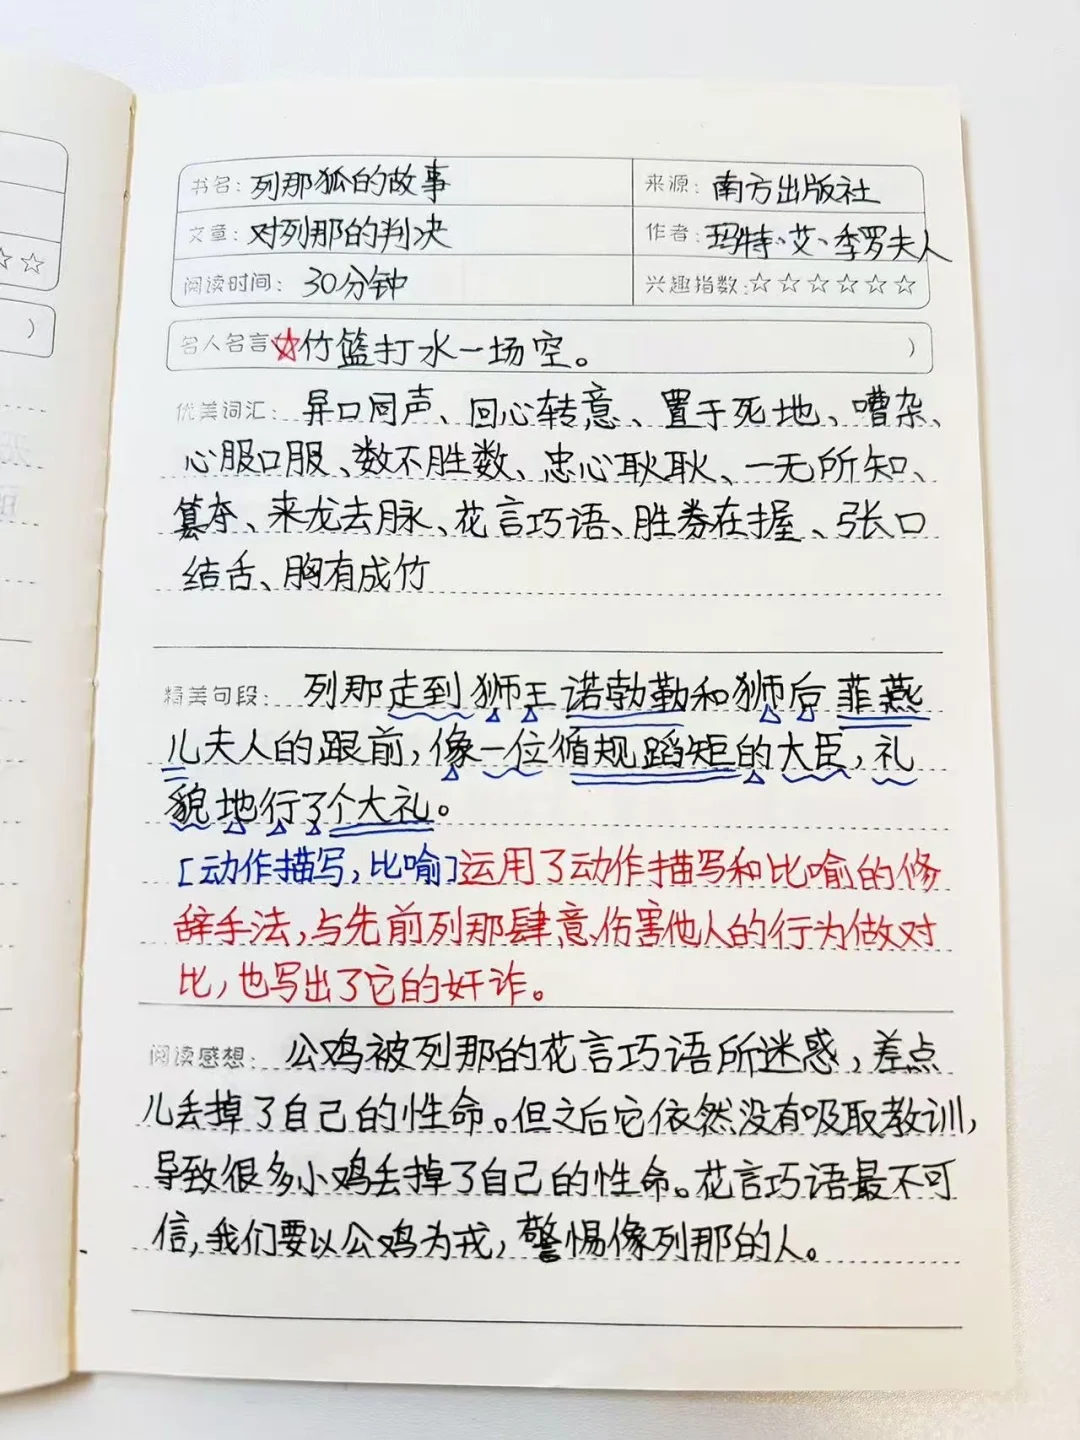 书名：列那狐的故事
来源：南方出版社
文章：对列那的判决
作者：玛特·艾·季罗夫人
阅读时间：30分钟
兴趣指数：☆☆☆☆☆☆
名人名言 竹篮打水一场空。）
优美词汇：异口同声、回心转意、置于死地、嘈杂、
心服口服、数不胜数、忠心耿耿、一无所知、
篡夺、来龙去脉、花言巧语、胜券在握、张口
结舌、胸有成竹
精美句段：列那走到狮王诺勃勒和狮后菲燕
儿夫人的跟前，像一位循规蹈矩的大臣，礼
貌地行了个大礼。
[动作描写，比喻]运用了动作描写和比喻的修
辞手法，与先前列那肆意伤害他人的行为做对
比，也写出了它的奸诈。
阅读感想：公鸡被列那的花言巧语所迷惑，差点
儿丢掉了自己的性命。但之后它依然没有吸取教训，
导致很多小鸡丢掉了自己的性命。花言巧语最不可
信，我们要以公鸡为戒，警惕像列那的人。